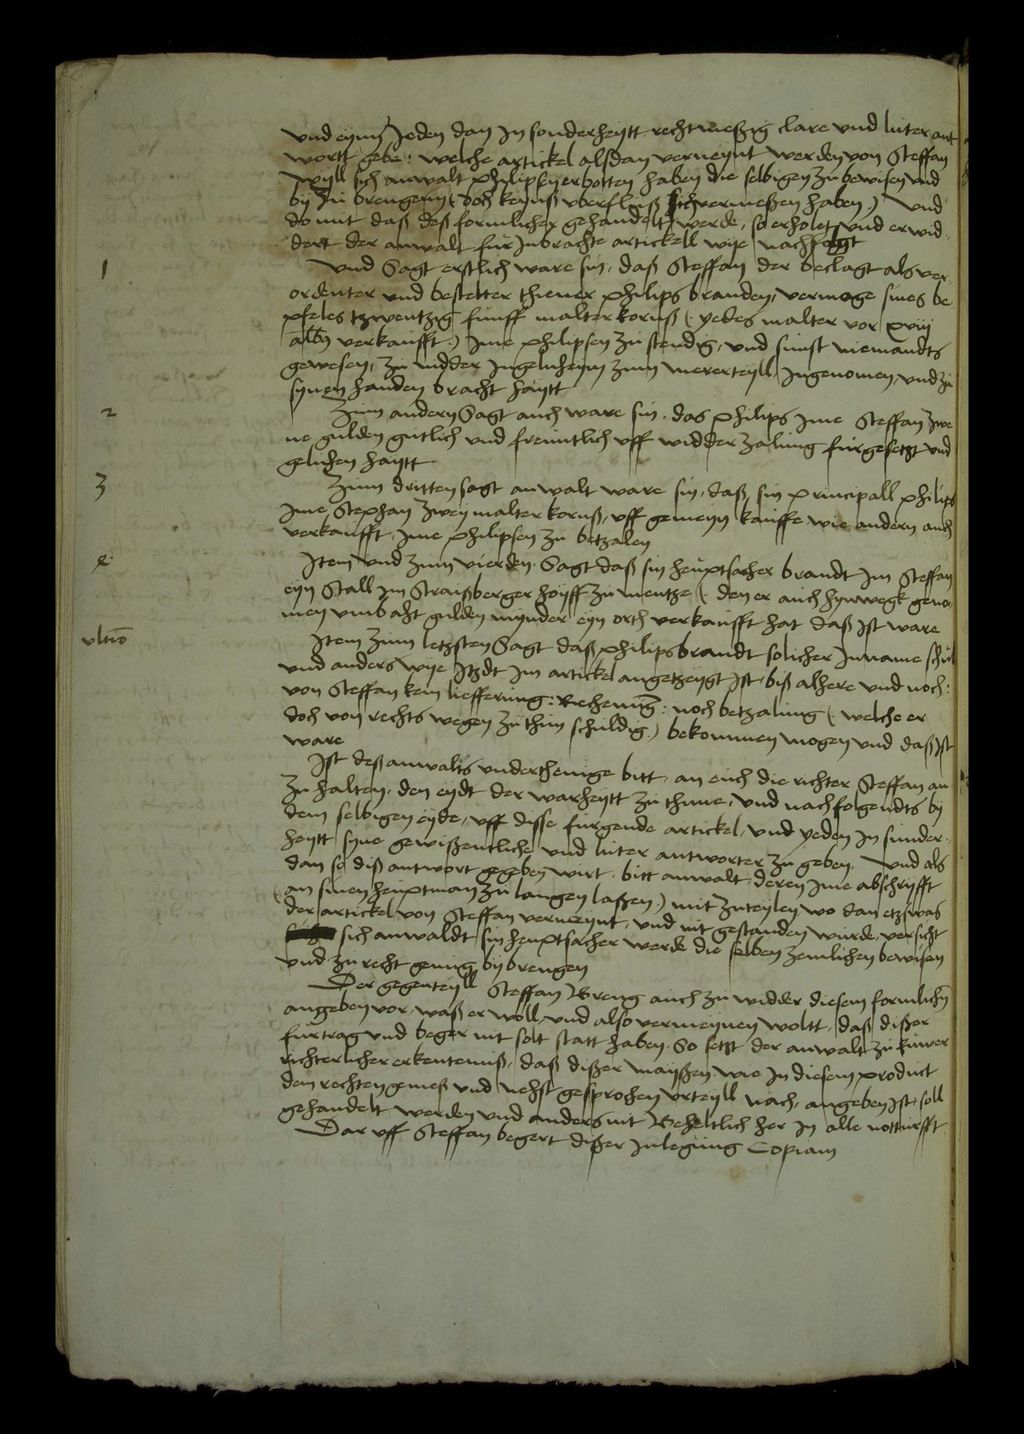 vnd eynn Jeden dan In sonderheytt rechtmeßig clare vnd luter ant
wortt gebe: welche artickel alßdan verneynt werden von Steffan
wyll sich anwalt Philipsen erbotten haben die selbigen zu bewisen vnd
by zu brengenn (doch keynß vberfluß sich vermeßen haben) Vnd
do mit daß deß formlicher gehandelt werde, so erholet vnd erwid
dert der anwalt fur Inbrachte artickell wije nachfolgt
1
Vnd Sagt erstlich ware sin, daß Steffan der beclagt als ver
ordenter vnd bestelter thiener Philips branden, vermoge sines be
pfeles tzwentzig funff malter kornß (yedes malter vor xviij
alb verkaufft) Ime Philipsen zu stendig, vnd sunst niemandts
gewesen, zu nidder Ingelnheym zum mererteyll Ingenomen, vnd zu
synen handen bracht haytt
2
Zum andern Sagt auch ware sin, das Philips Ime Steffan zwe
ne gulden gutlich vnd freuntlich vff widder zalung furgesetzt vnd
geluhen haytt
3
Zum dritten sagt anwalt ware sin, daß sin Principall Philips
Ime Stephan zwey malter kornß, vff gemeyn kauffe wie andern auch
verkaufft, Ime Philipsen zu betzalen
4
Item vnd zum vierden Sagt daß sin heuptsacher brandt Im Steffan
eyn Stall Im Straußberger hoyff zu mentze (den er auch hynwegk geno
men vmb aht gulden mynder eyn orth verkaufft hat daß Ist ware
vltio
Item zum letzsten Sagt daß Philips brandt solicher Inname schul
vnd anders wye Itzdt Im artickel angetzeygt Ist, biß alhere vnd noch:
von Steffan kein liefferung: Rechenung: noch betzalung (welche er
doch von rechts wegen zu thun schuldig) bekommen mogen vnd daß Ist
ware
Ist deß anwalts vnderthenige bitt, an euch die richter Steffan an
zu halten, den eydt der warheytt zu thune, vnd nachfolgendts by
dem selbigen eyde, vff disse furgende artickel, vnd yeden In sunder
heytt syne gewißentliche vnd luter antworter zu geben. Vnd als
dan so diß antwort gegeben wirt, bitt anwalt deren Ime abschryfft
(an sinen heuptman zu langen laßen) mit zuteylen wo dan etzwas
der artickel von Steffan verneynt, vnd nit gestanden wurde, versicht
sich anwaldt sin heuptsacher werde die selben zemlichen bewisen
vnd zu recht genug bybrengen
Der gegenteyll Steffan Breng auch zu widder diesem formlichn
angeben vor, waß er woll, vnd also vermeynen woltt, daß dißer
furtrag vnd beger nit solt statt haben, So setzt der anwalt zu kuwer
richterlicher erkentenuß, daß dißer mayßen wie In diesem product
den rechten gemeß vnd nehst gesprohen vrteyll nach, angeben Ist, soll
gehandelt werden vnd anders nit Beheltlich her In alle notturfft
Dar vff Steffan begert dißer Inlegung Copiam